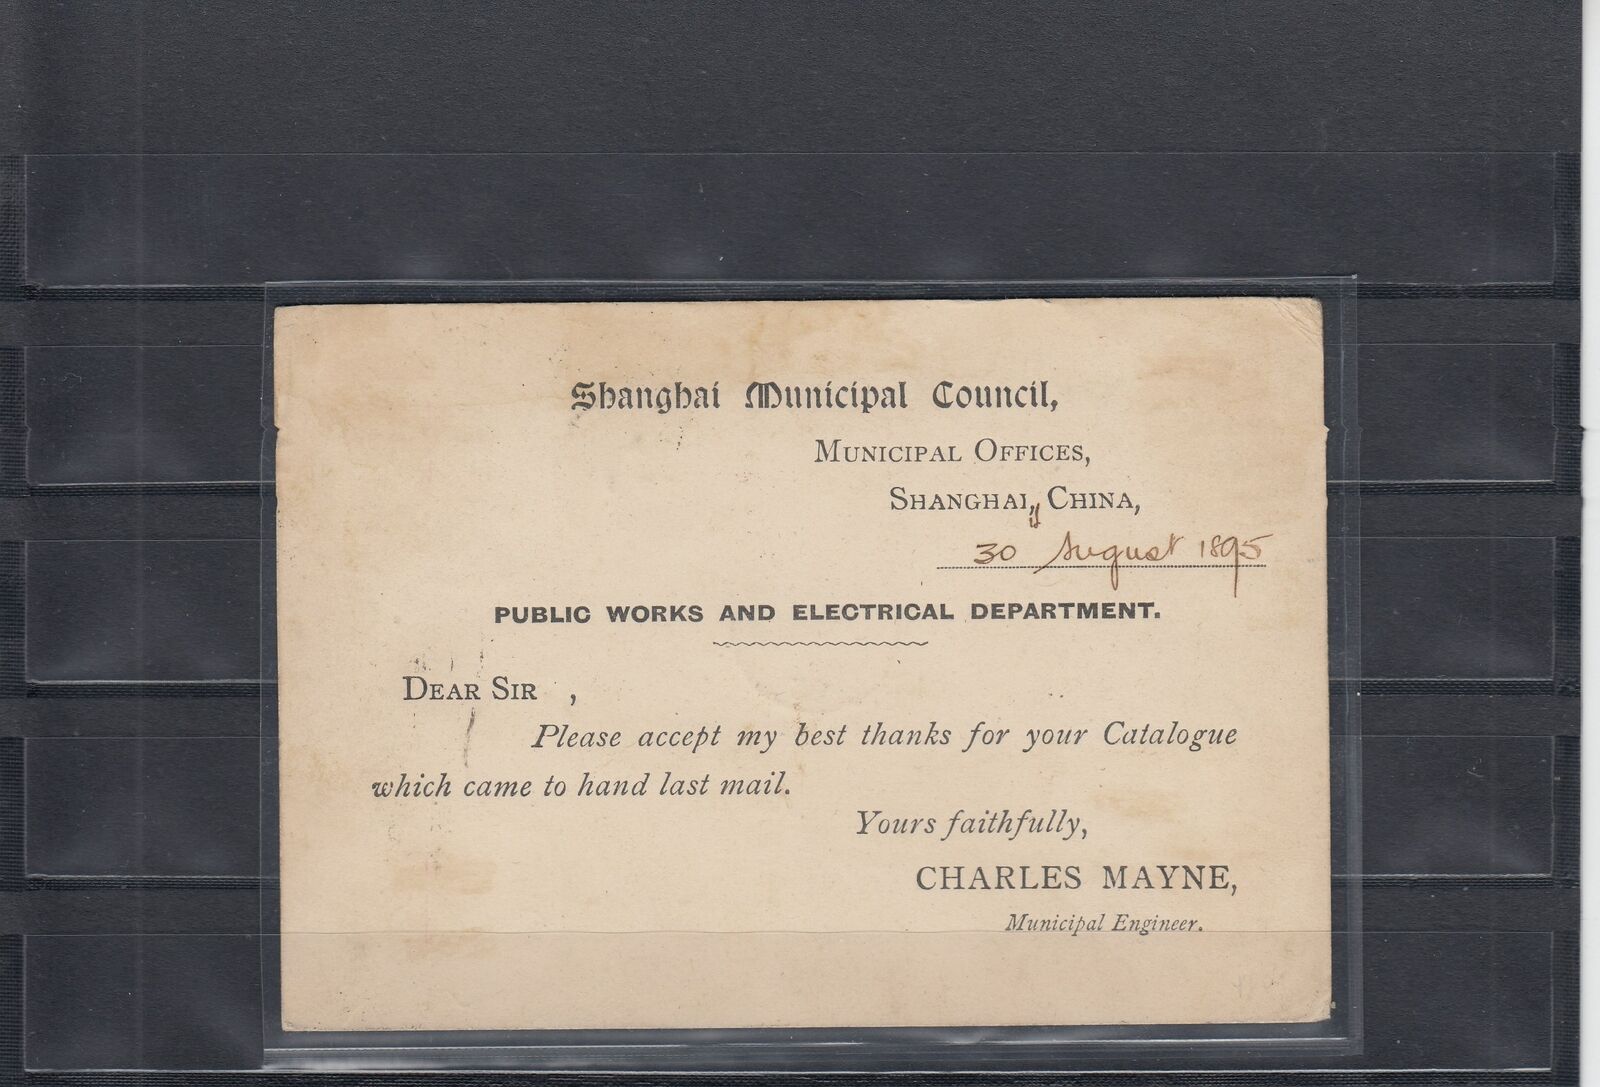 Shanghai Municipal Council,
Municipal Offices,
Shanghai, China,
30 August 1895
PUBLIC WORKS AND ELECTRICAL DEPARTMENT.
Dear Sir ,
Please accept my best thanks for your Catalogue
which came to hand last mail.
Yours faithfully,
CHARLES MAYNE,
Municipal Engineer.